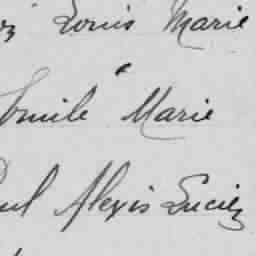 Louis Marie
Émile Marie
Paul Alexis Lucien